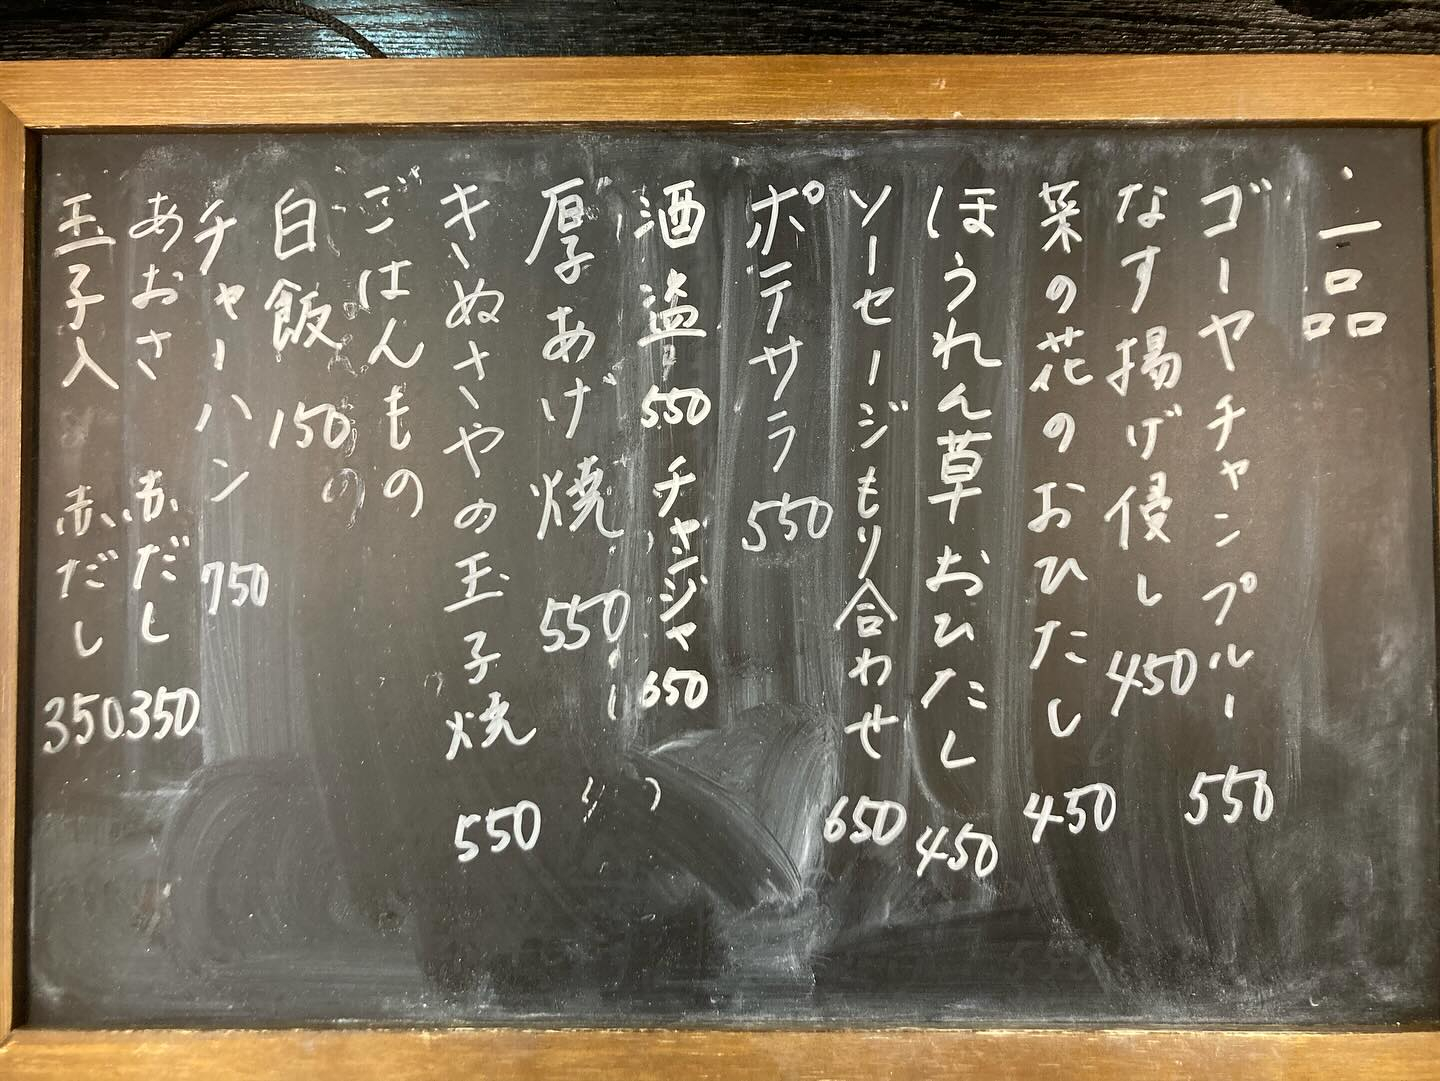 一品
ゴーヤチャンプルー 550
なす揚げ侵し 450
菜の花のおひたし 450
ほうれん草おひたし 450
ソーセージもり合わせ 650
ポテサラ 550
酒盗 550 チャンジャ 650
厚あげ焼 550
きぬさやの玉子焼 550
ごはんもの
白飯 150
チャーハン 750
あおさ 赤だし 350
玉子入 赤だし 350